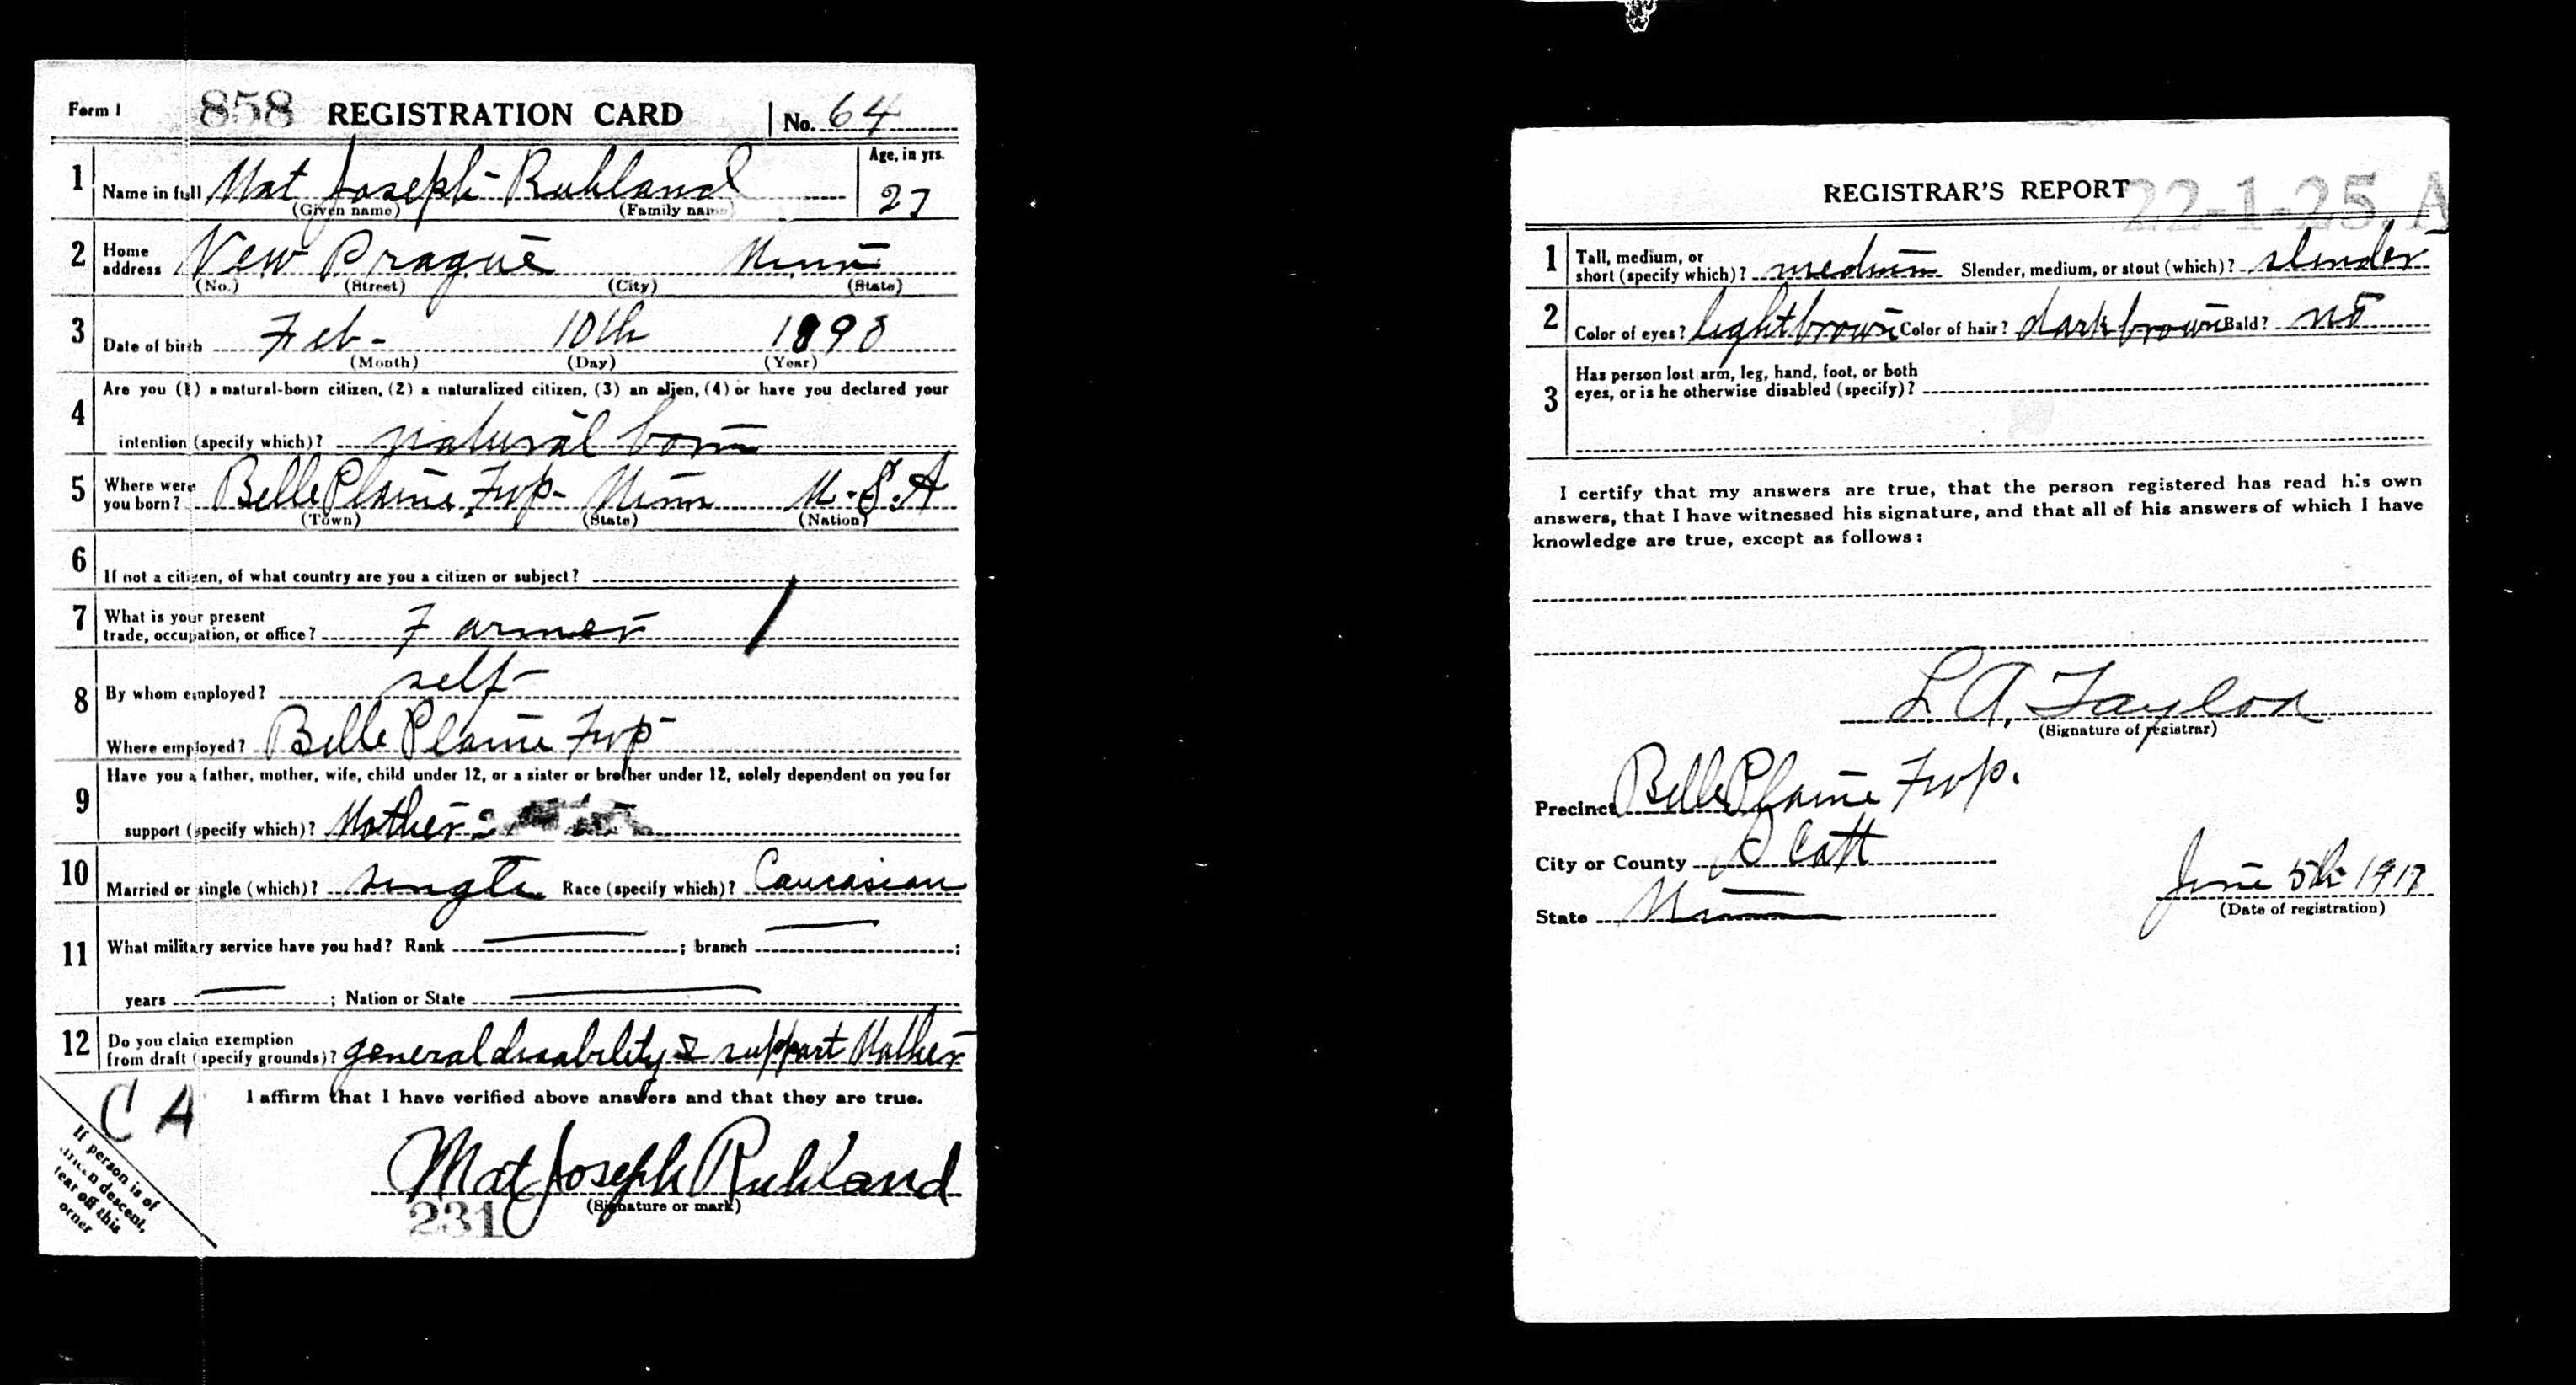 Form 1 858 REGISTRATION CARD No. 64
1 Name in full Mat Joseph Ruhland Age, in yrs.
(Given name) (Family name) 27
2 Home address New Prague Minn
(No.) (Street) (City) (State)
3 Date of birth Feb - 10th 1890
(Month) (Day) (Year)
4 Are you (1) a natural-born citizen, (2) a naturalized citizen, (3) an alien, (4) or have you declared your
intention (specify which)? natural born
5 Where were you born? Belle Plaine Twp - Minn U.S.A
(Town) (State) (Nation)
6 If not a citizen, of what country are you a citizen or subject?
7 What is your present
trade, occupation, or office? Farmer
8 By whom employed? self
Where employed? Belle Plaine Twp
9 Have you a father, mother, wife, child under 12, or a sister or brother under 12, solely dependent on you for
support (specify which)? Mother
10 Married or single (which)? single Race (specify which)? Caucasian
11 What military service have you had? Rank ; branch ;
years ; Nation or State
12 Do you claim exemption
from draft (specify grounds)? general disability & support Mother
I affirm that I have verified above answers and that they are true.
C A
If person is of
descent,
tear off this
corner
Mat Joseph Ruhland
(Signature or mark)
231
REGISTRAR'S REPORT 22-1-25 A
1 Tall, medium, or
short (specify which)? medium Slender, medium, or stout (which)? slender
2 Color of eyes? light brown Color of hair? dark brown Bald? no
3 Has person lost arm, leg, hand, foot, or both
eyes, or is he otherwise disabled (specify)?
I certify that my answers are true, that the person registered has read his own
answers, that I have witnessed his signature, and that all of his answers of which I have
knowledge are true, except as follows:
L. A. Taylor
(Signature of registrar)
Precinct Belle Plaine Twp.
City or County Scott
State Minn
June 5th 1917
(Date of registration)